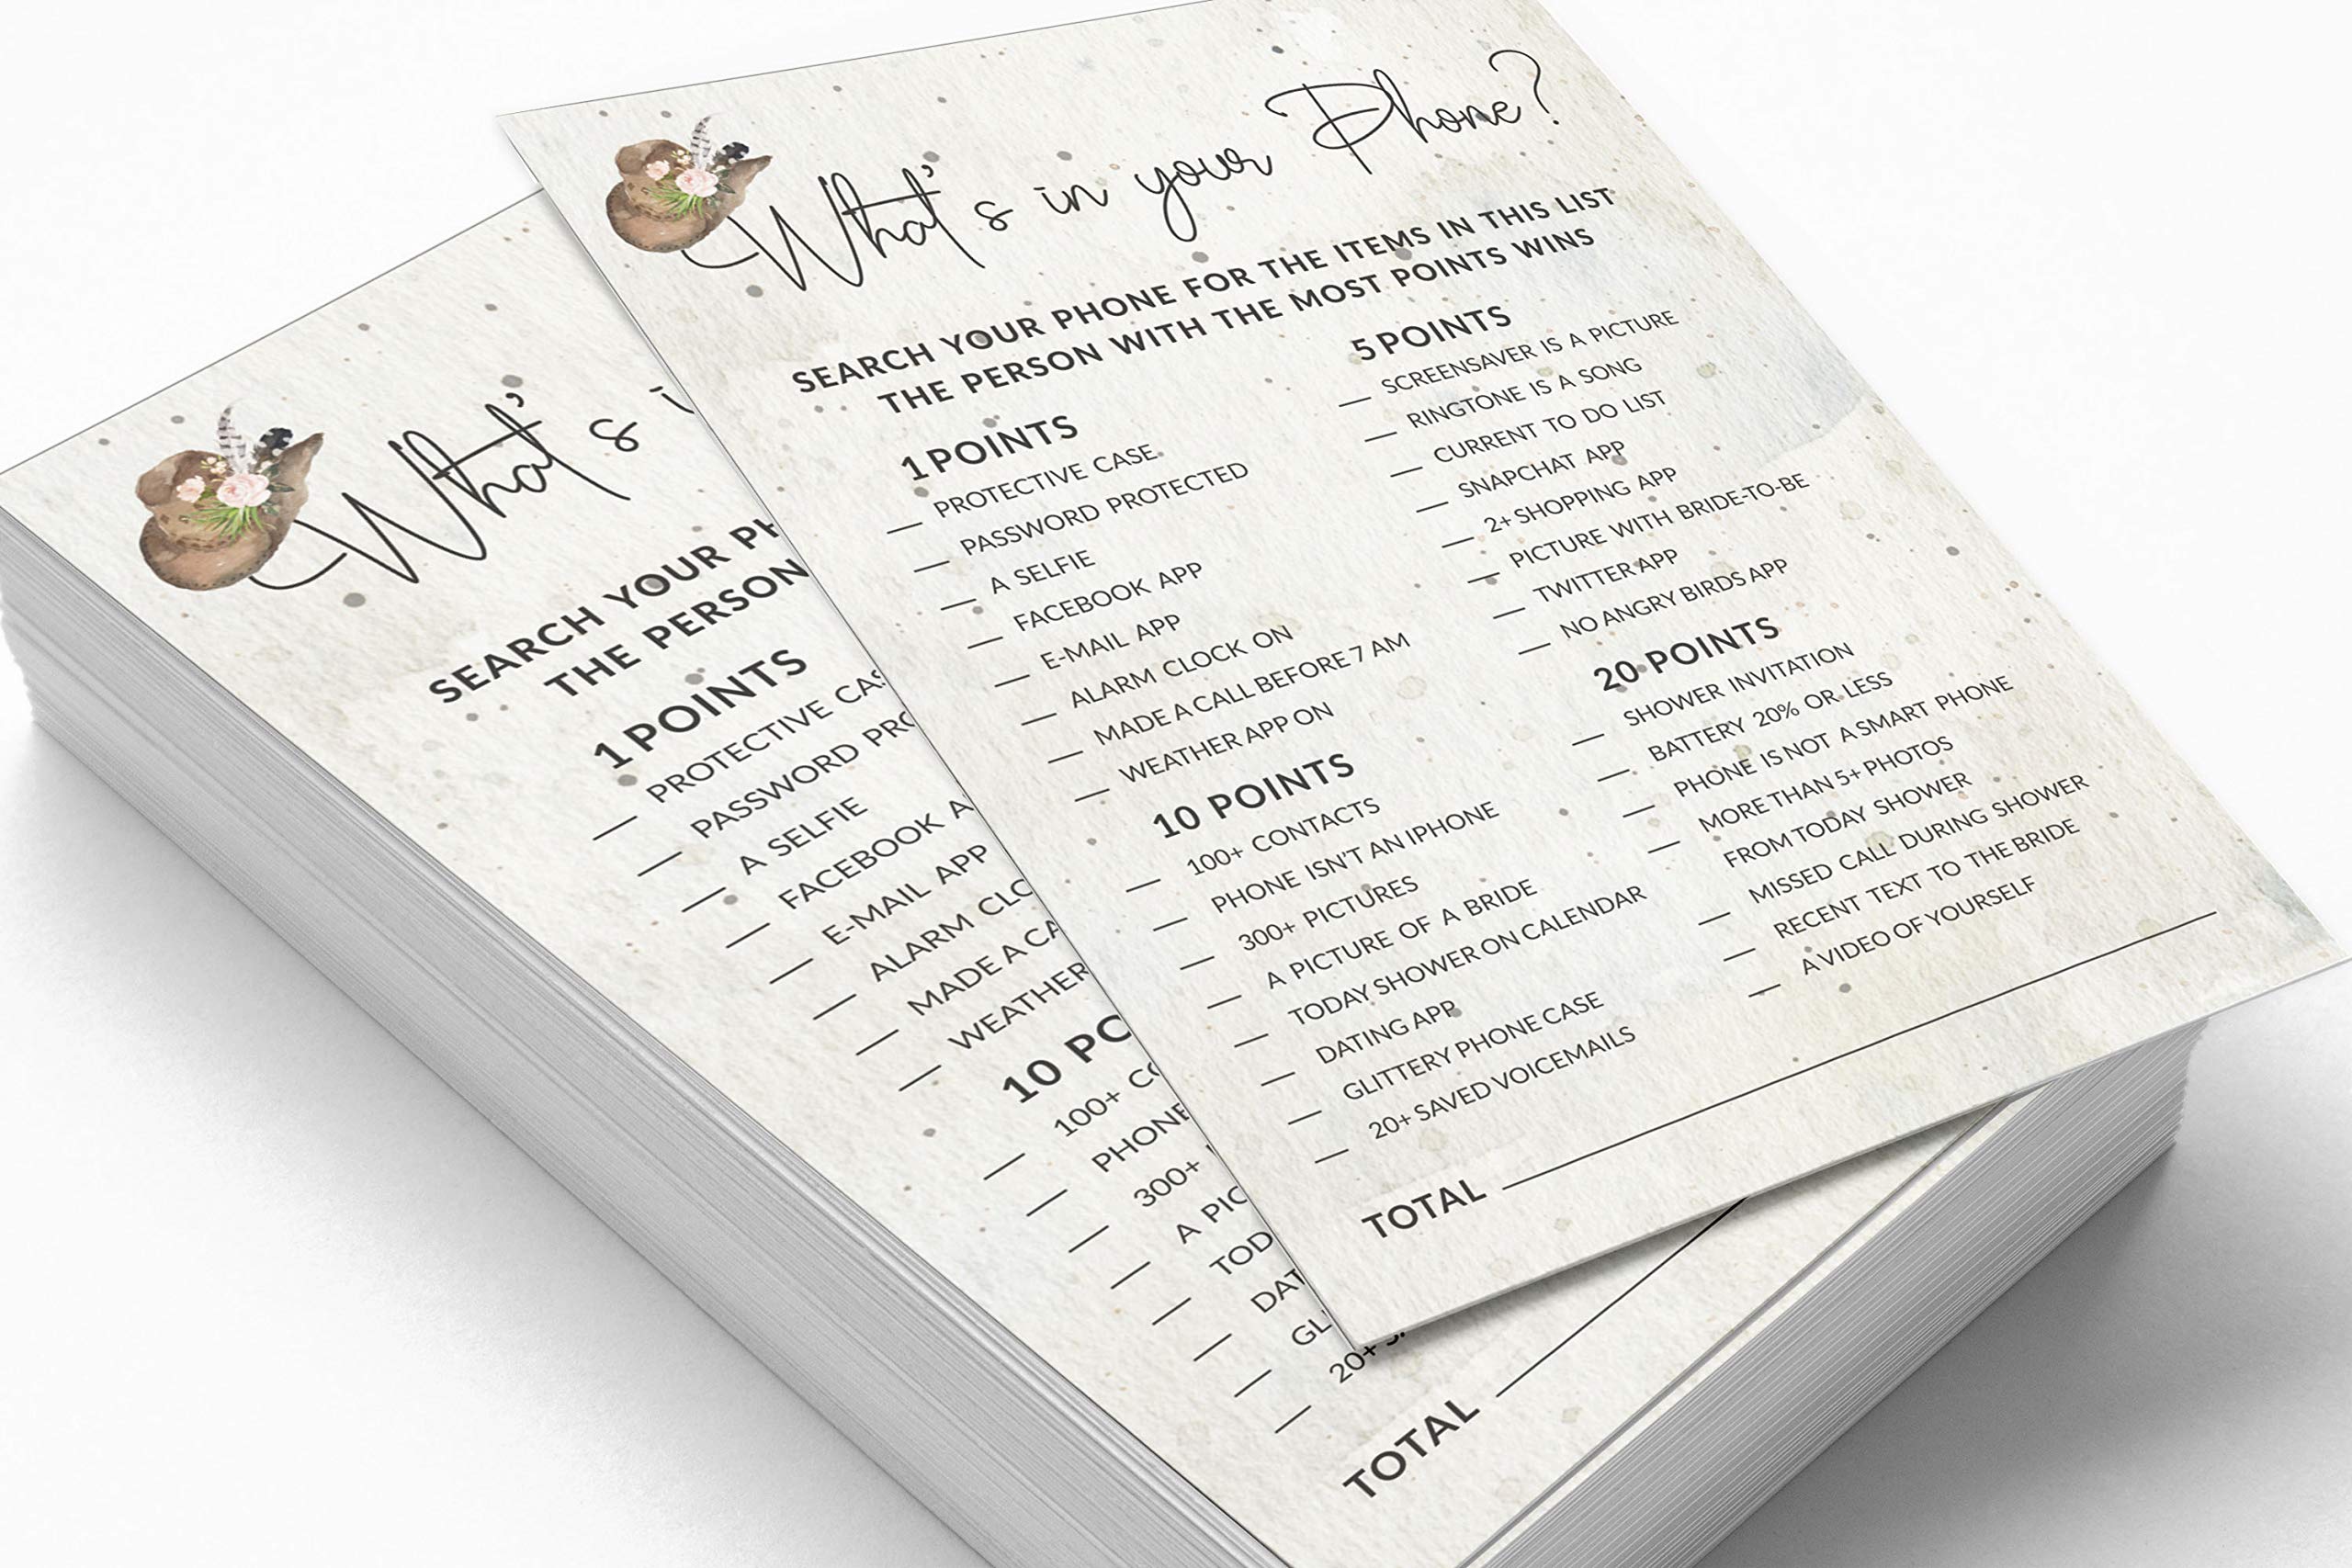 What's in your Phone?
SEARCH YOUR PHONE FOR THE ITEMS IN THIS LIST
THE PERSON WITH THE MOST POINTS WINS
1 POINTS
PROTECTIVE CASE
PASSWORD PROTECTED
A SELFIE
FACEBOOK APP
E-MAIL APP
ALARM CLOCK ON
MADE A CALL BEFORE 7 AM
WEATHER APP ON
10 POINTS
100+ CONTACTS
PHONE ISN'T AN IPHONE
300+ PICTURES
A PICTURE OF A BRIDE
TODAY SHOWER ON CALENDAR
DATING APP
GLITTERY PHONE CASE
20+ SAVED VOICEMAILS
5 POINTS
SCREENSAVER IS A PICTURE
RINGTONE IS A SONG
CURRENT TO DO LIST
SNAPCHAT APP
2+ SHOPPING APP
PICTURE WITH BRIDE-TO-BE
TWITTER APP
NO ANGRY BIRDS APP
20 POINTS
SHOWER INVITATION
BATTERY 20% OR LESS
PHONE IS NOT A SMART PHONE
MORE THAN 5+ PHOTOS
FROM TODAY SHOWER
MISSED CALL DURING SHOWER
RECENT TEXT TO THE BRIDE
A VIDEO OF YOURSELF
TOTAL
What's i
SEARCH YOUR PH
THE PERSON
1 POINTS
PROTECTIVE CAS
PASSWORD PRO
A SELFIE
FACEBOOK A
E-MAIL APP
ALARM CLO
MADE A CA
WEATHER
10 PO
100+ CO
PHONE
300+
A PIC
TOD
DAT
GL
20+ S
TOTAL